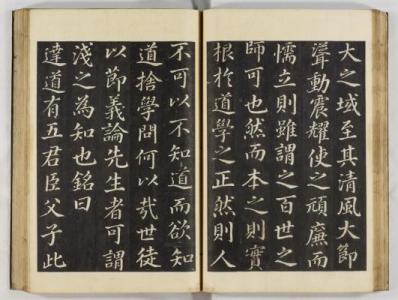 大之域至其清風大節
聳動震耀使之頑廉而
懦立則雖謂之百世之
師可也然而本之則實
根於道學之正然則人
不可以不知道而欲知
道捨學問何以哉世徒
以節義論先生者可謂
淺之為知也銘曰
達道有五君臣父子此